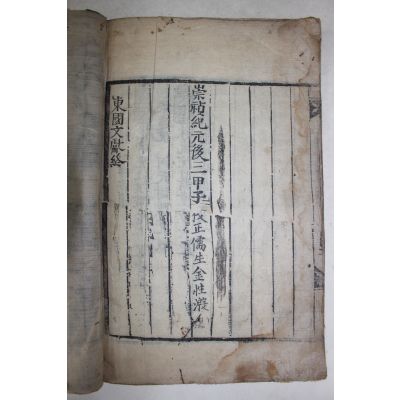 崇禎紀元後三甲子 校正儒生金性溵
東國文獻終